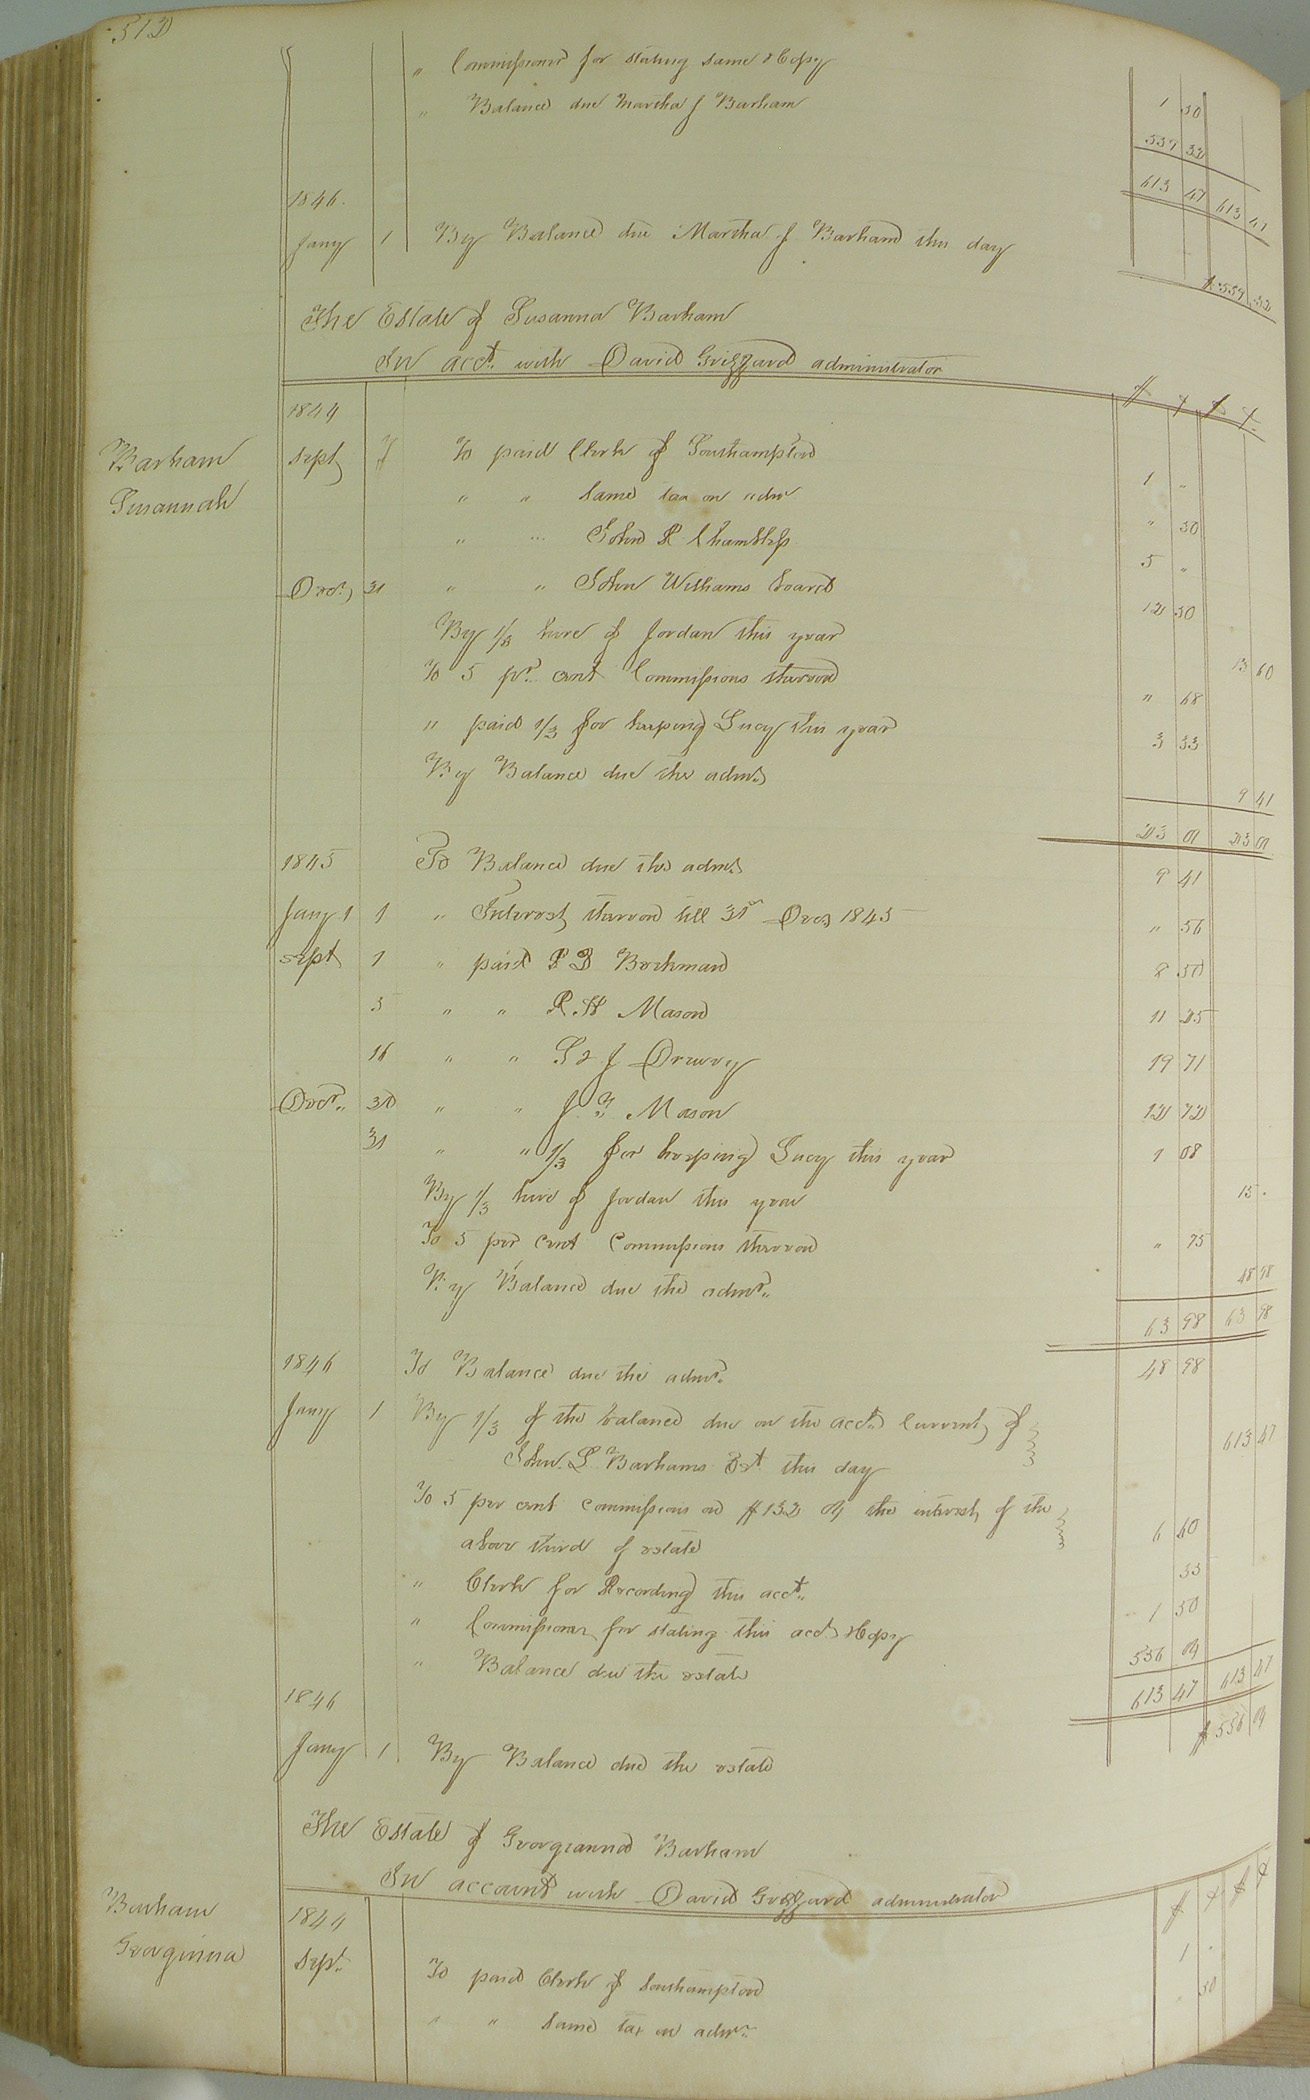 512
" Commissioner for stating same & Copy 1 50
" Balance due Martha J Barham 539 32
613 47 613 47
1846.
Jany 1 By Balance due Martha J Barham this day $539 32
The Estate of Susanna Barham
In acct. with David Grizzard administrator
$ ¢ $ ¢
1844
Barham Susannah
Sept To paid Clerk of Southampton 1 "
" " Same tax on adm " 50
" " John R Chambliss 5 "
Decr. 31 " " John Williams board 12 50
By 1/3 hire of Jordan this year 13 60
To 5 pr. cent Commissions thereon " 68
" paid 1/3 for keeping Lucy this year 3 33
By Balance due the admr. 9 41
23 01 23 01
1845 To Balance due the admr. 9 41
Jany 1 1 " Interest thereon till 31st Decr 1845 " 56
Sept 1 " paid Bockman 8 50
5 " " R. H Mason 11 25
16 " " J Drewry 19 71
Decr.. 30 " " J. Y. Mason 12 72
31 " " 1/3 for keeping Lucy this year 1 08
By 1/3 hire of Jordan this year 15 .
To 5 per cent Commissions thereon " 75
By Balance due the admr.. 48 98
63 98 63 98
1846 To Balance due the admr. 48 98
Jany 1 By 1/3 of the balance due on the acct. Current of
John. S. Barhams Est. this day 613 47
To 5 per cent commissions on $132 of the interest of the
above third of estate 6 60
" Clerk for Recording this acct.. 35
" Commissioner for stating this acct & Copy 1 50
" Balance due the estate 556 04
613 47 613 47
1846
Jany 1 By Balance due the estate $556 04
The Estate of Georgianna Barham
In account with David Grizzard administrator
$ ¢ $ ¢
Barham
Georginna
1844
Sept. To paid Clerk of Southampton 1 .
" " Same tax on admr. . 50